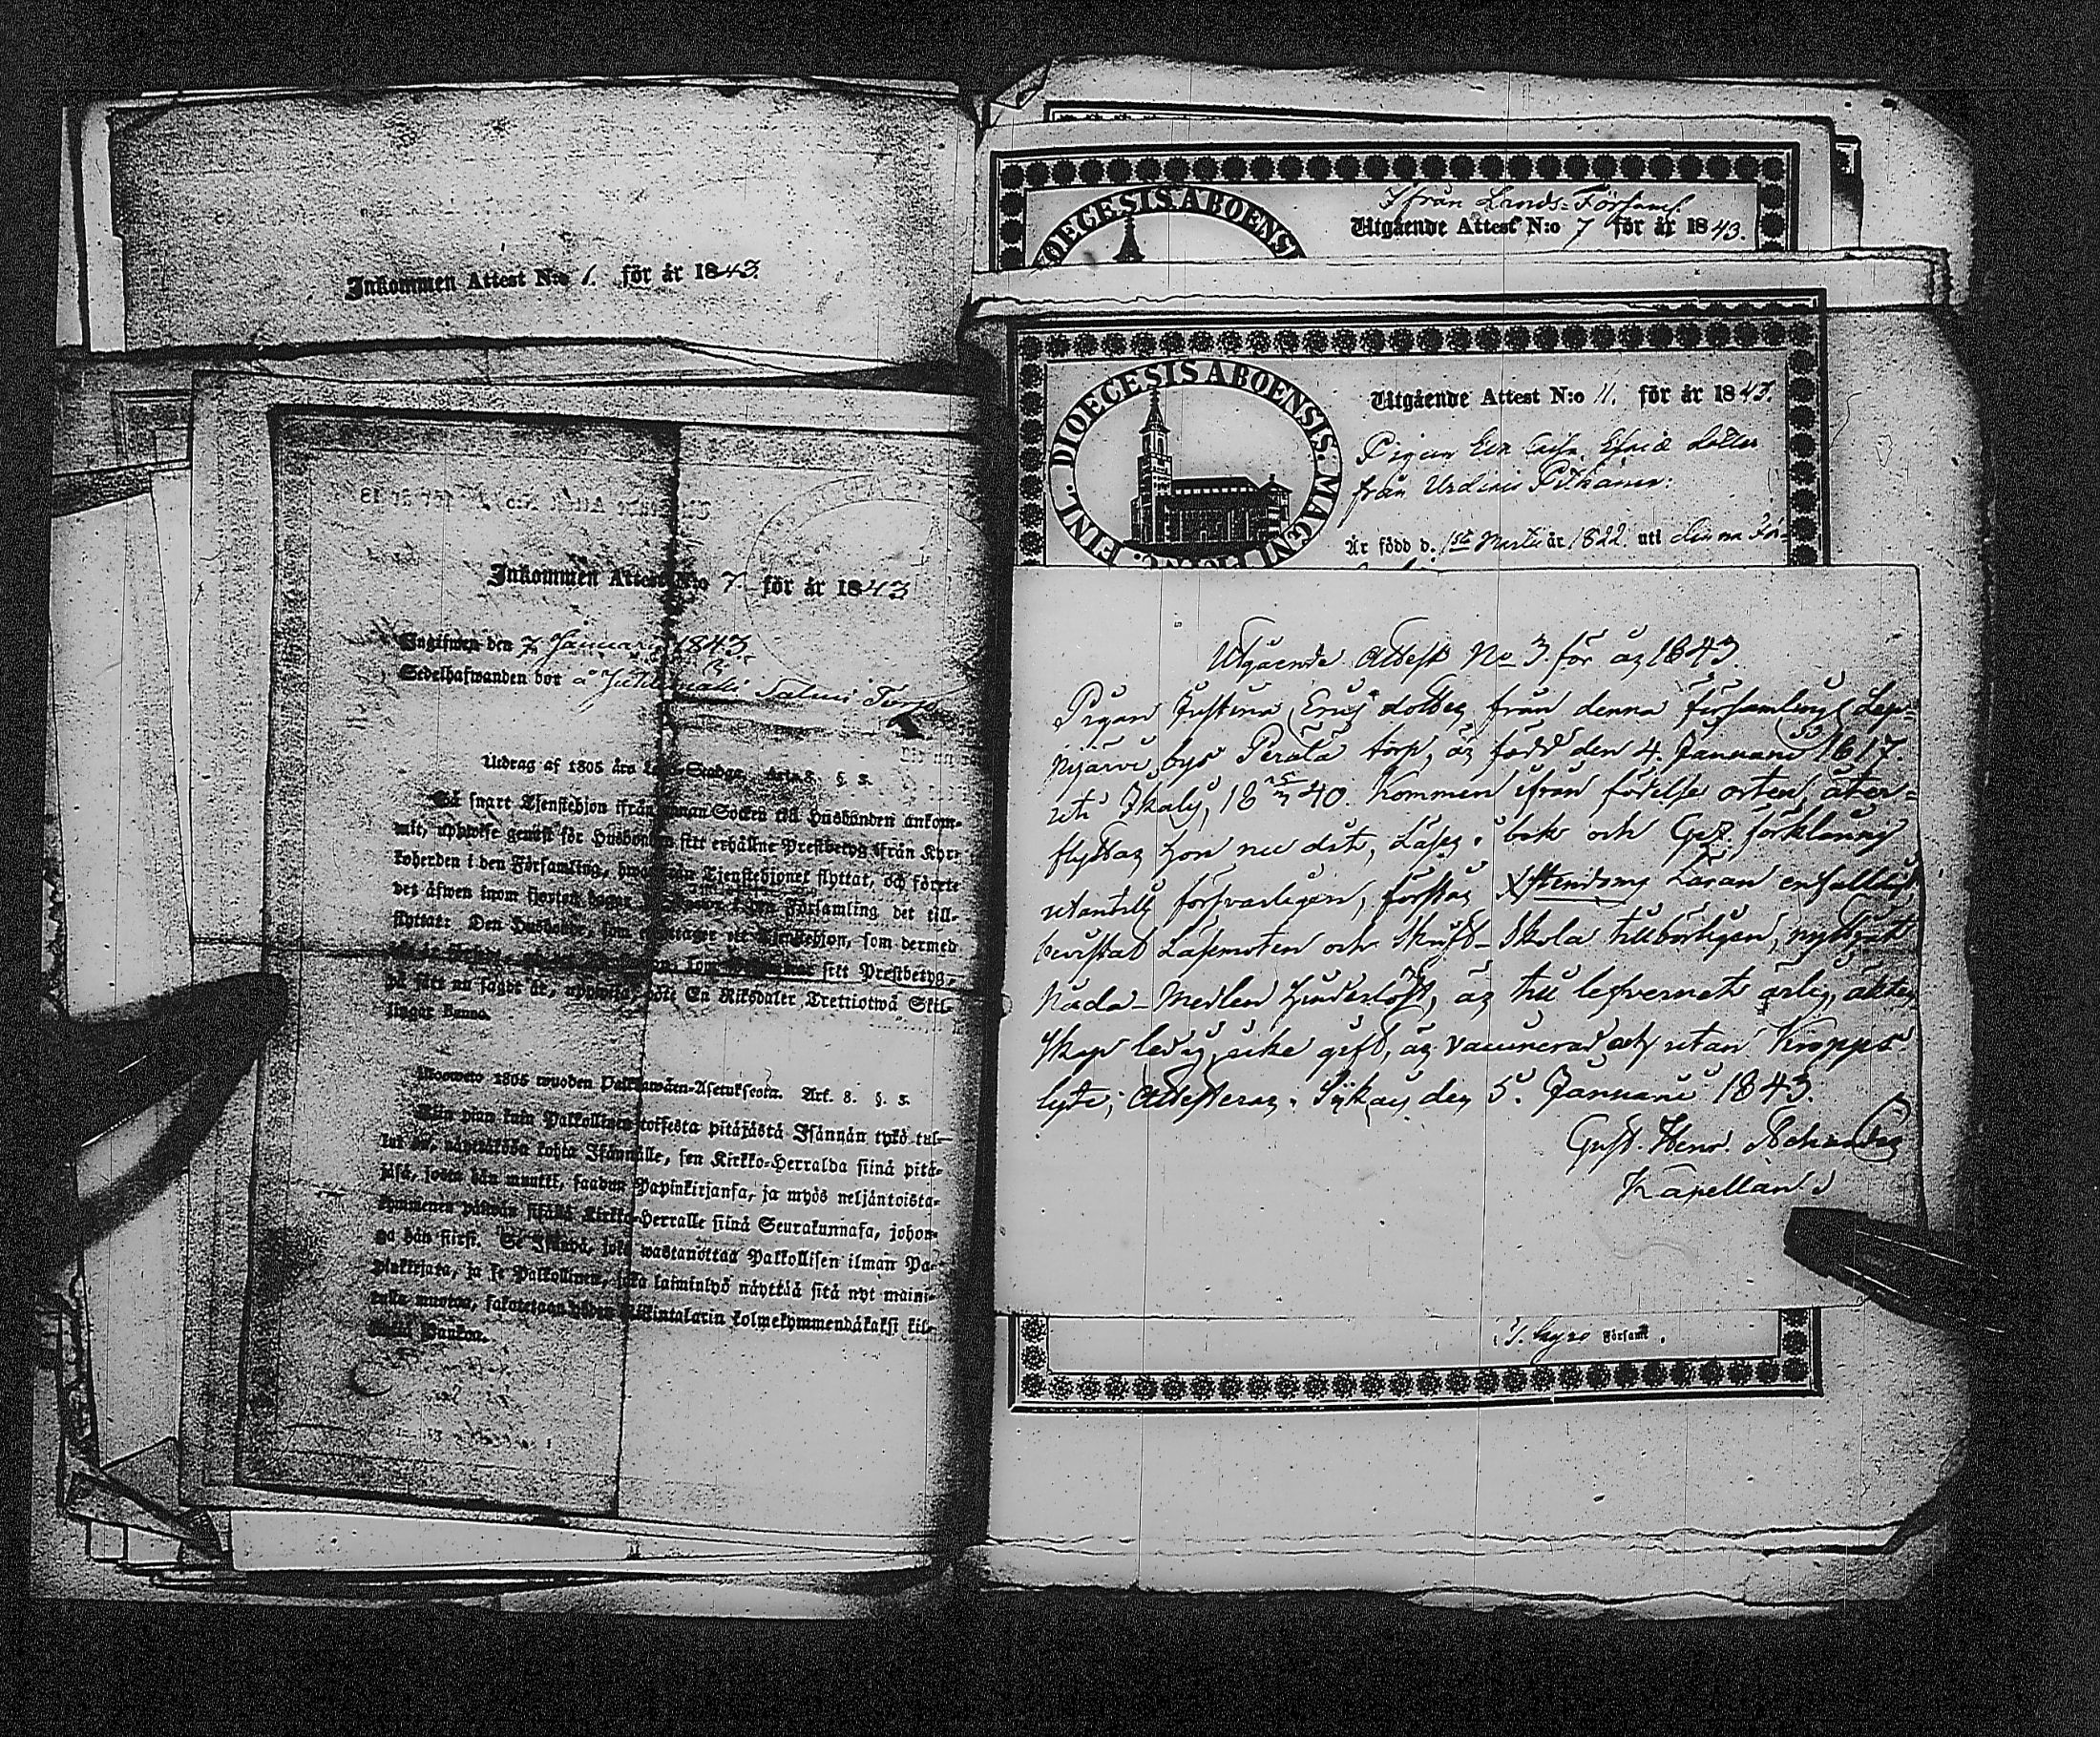 Inkommen Attest N:o 1. för år 1843.
Inkommen Attest N:o 7. för år 1843
Angifwen den 7 Januari 1843
Sedelhafwanden bor å Salmi Torp
Utdrag af 1805 års Lego-Stadga. Art. 8. §. 3.
Så snart Tjenstehjon ifrån annan Socken till Husbonden ankom-
mit, uppwise genast för Husbonden sitt erhållne Prestbetyg ifrån Kyr-
koherden i den Församling, hwarifrån Tjenstehjonet flyttat, och förete
det äfwen inom fjorton dagar i den Församling det till-
flyttat: Den Husbonde, som emottager ett Tjenstehjon, som dermed
sitt Prestbetyg,
på sätt nu sagdt är, uppwisa, böte En Riksdaler Trettiotwå Skil-
lingar Banco.
1805 wuoden Palkkawäen-Asetuksesta. Art. 8. §. 3.
Niin pian kuin Palkollinen toisesta pitäjästä Isännän tykö tul-
lut on, näyttäköön kohta Isännälle, sen Kirkko-Herralda siinä pitä-
jäsä, josta hän muutti, saadun Papinkirjansa, ja myös neljäntoista-
kymmenen päiwän sisällä Kirkko-Herralle siinä Seurakunnasa, johon-
ga hän siirsi. Se Isändä, joka wastanottaa Palkollisen ilman Pa-
pinkirjata, ja se Palkollinen, joka laiminlyö näyttää sitä nyt maini-
tulla muotoa, sakotetaan Riikintalarin kolmekymmendäkaksi kil-
Bankon.
DIOECESIS ABOENSI
Ifrån Lands-Församl
Utgående Attest N:o 7 för år 1843.
DIOECESIS ABOENSIS. MAGNI FINL.
Utgående Attest N:o 11. för år 1843.
Pigan Eva Caisa dotter
från
Är född d. 1ste Martii år 1822. uti denna För-
Utgående Attest No 3. för år 1843.
Pigan Justina Ersdotter från denna församlings Lep-
Njärvi bys Perälä torp, är född den 4. Januarii 1817.
uti Ikalis, 18 40. Kommen ifrån födelse orten åter-
flyttar hon nu dit, Läser i bok och förklaring
utantill försvarligen, förstår Xstendoms Läran enfaldigt
bevistat Läsmöten och Skrift-Skola tillbörligen, nyttjat
Nåda-Medlen hinderlöst, är till lefvernet ärlig, äkten-
skap ledig, icke gift, är vaccinerad och utan kropps-
lyte; Attesterar. Jykais den 5. Januarii 1843.
Gust. Henr.
Kapellan
Församl.